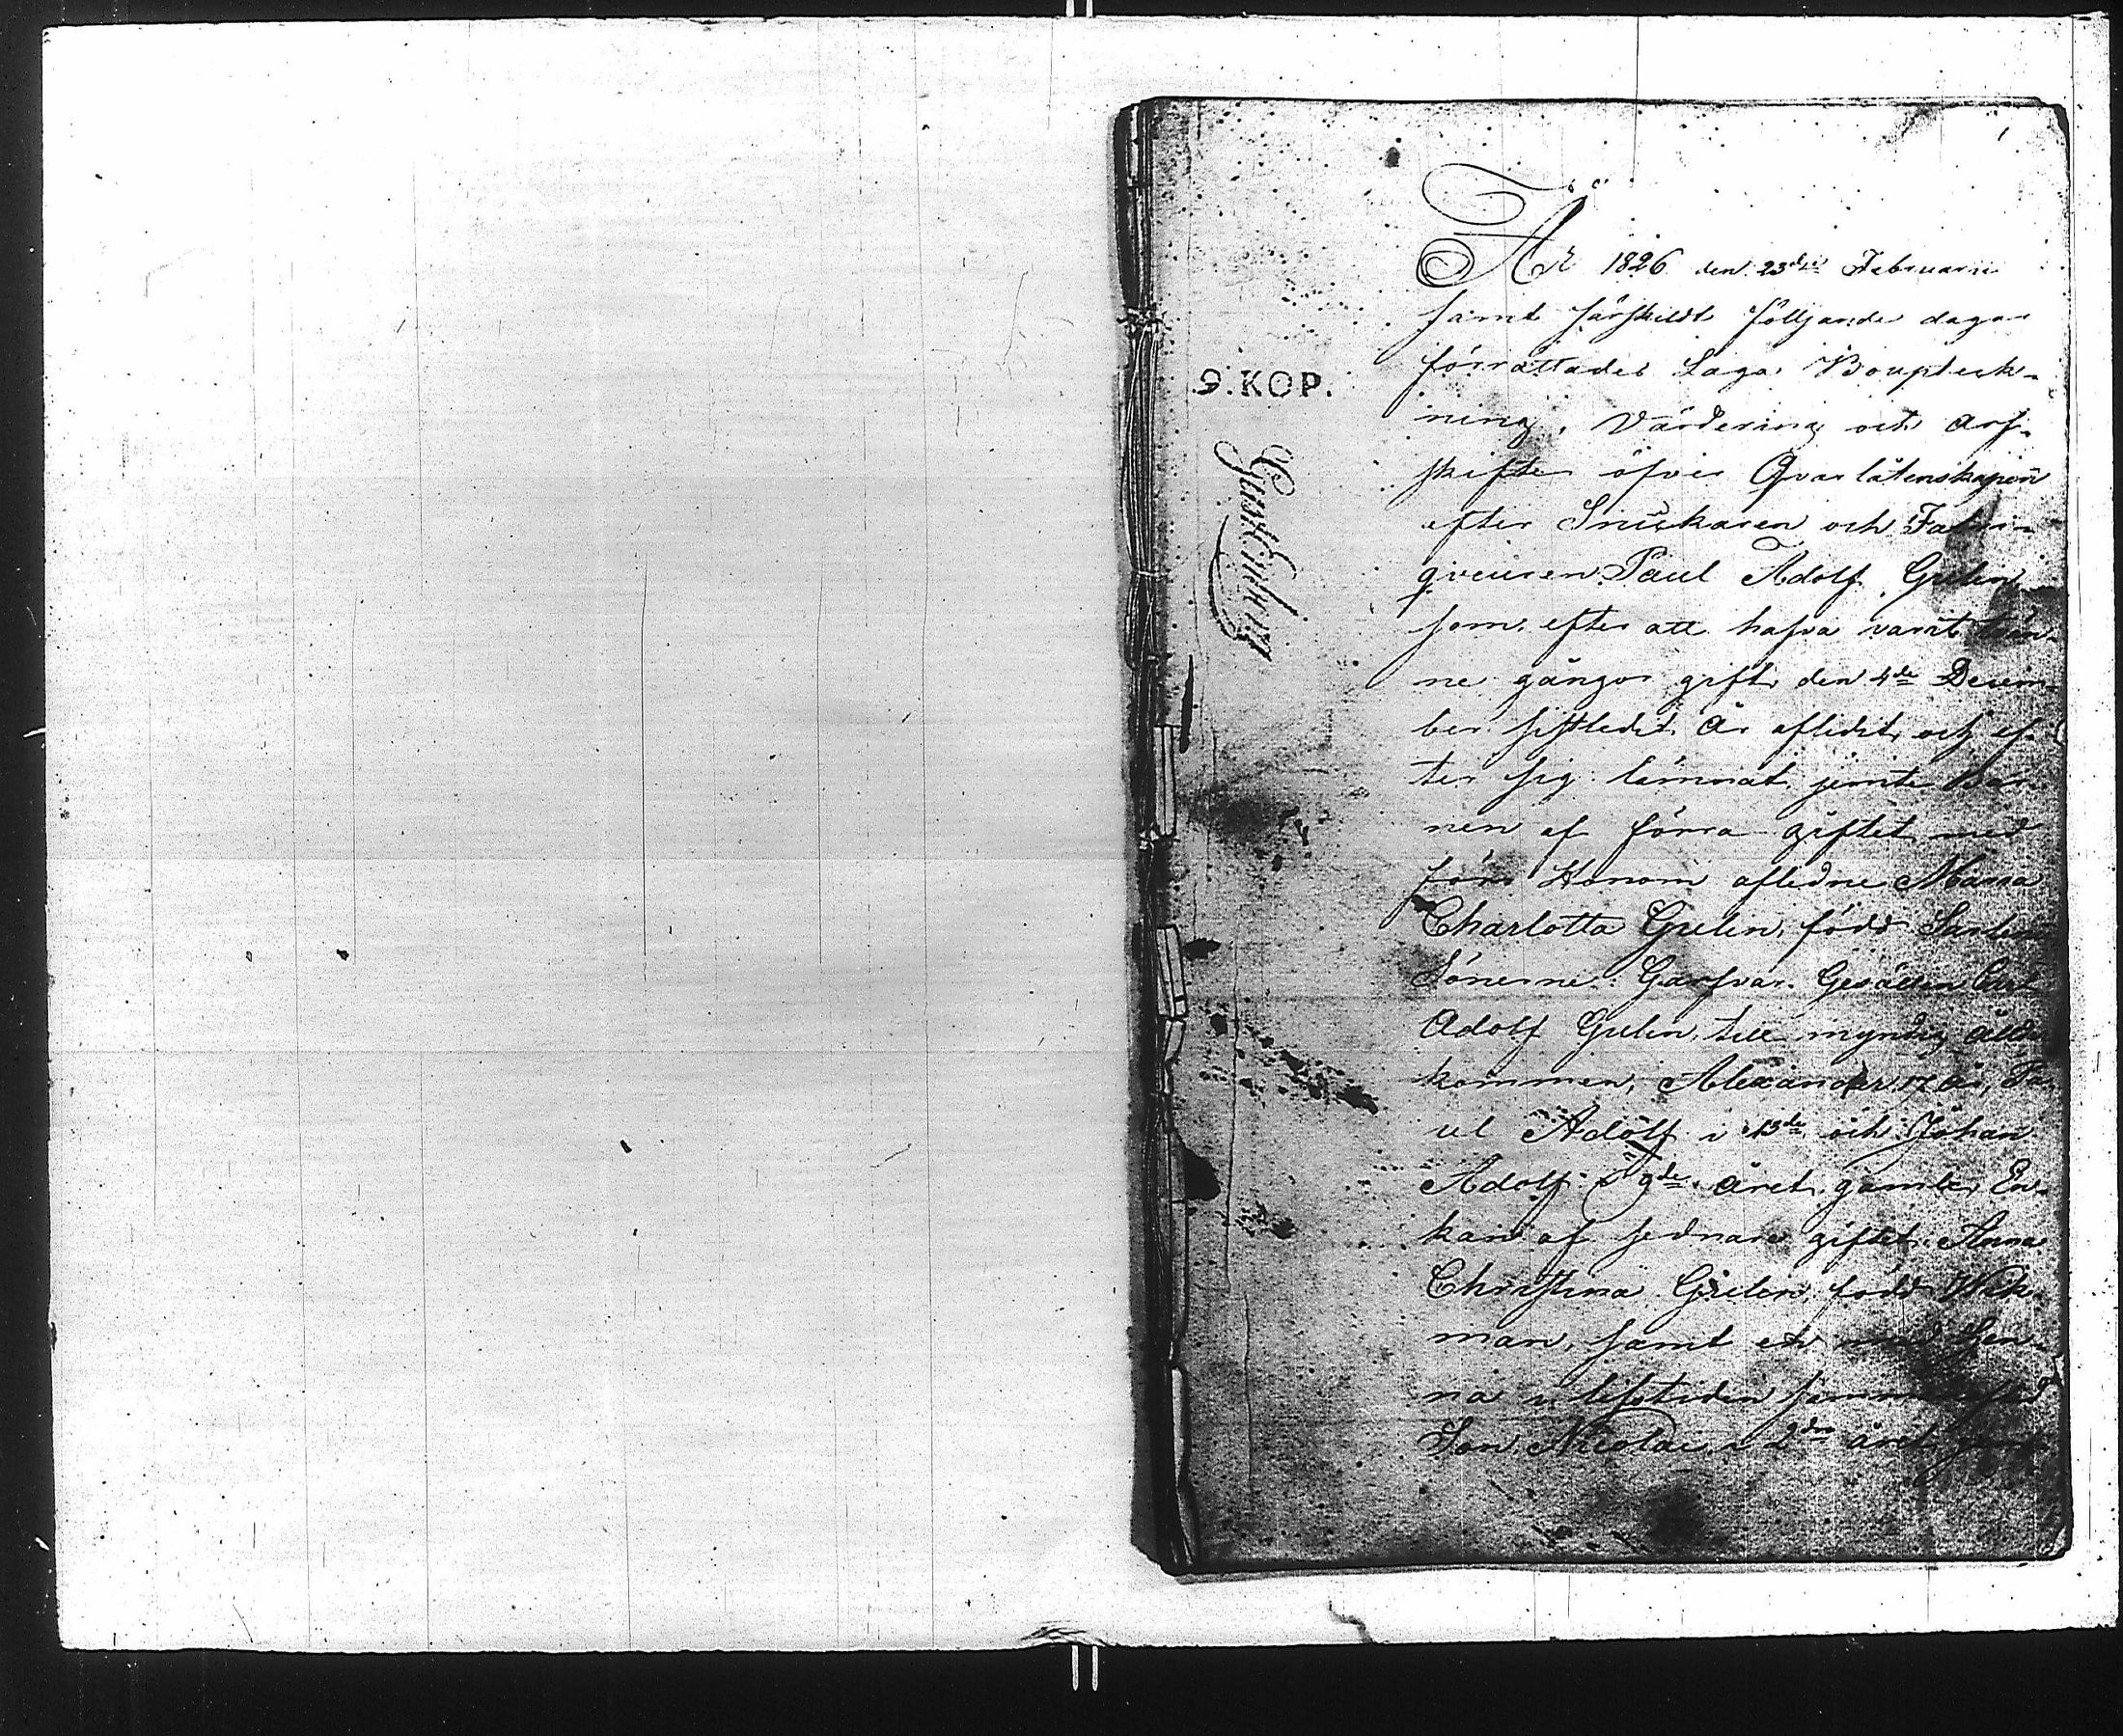 År 1826 den 23die Februarii
samt särskildt följande dagar
förrättades Laga Bouptek-
ning, Värdering och Arf-
skifte öfver Qvarlåtenskapen
efter Snickaren och Fabri-
qveuren Paul Adolf Grelin,
som efter att hafva varit tvän-
ne gångor gift, den 4de Decem-
ber sistledit År aflidit, och ef-
ter sig lämnat jemte Bar-
nen af förra giftet med
före Honom aflidne Maria
Charlotta Grelin, född
Sönerne Garfvar Gesällen Carl
Adolf Grelin, till myndig ålder
kommen, Alexander 17 år, Pa-
ul Adolf i 13de och Johan
Adolf i 9de året gamle, En-
kan af sednare giftet Anna
Christina Grelin, född Wik-
man, samt en med hen-
na i lifstiden
Son Nicolai i 2dra året
9. KOP.
Gust. Enberg